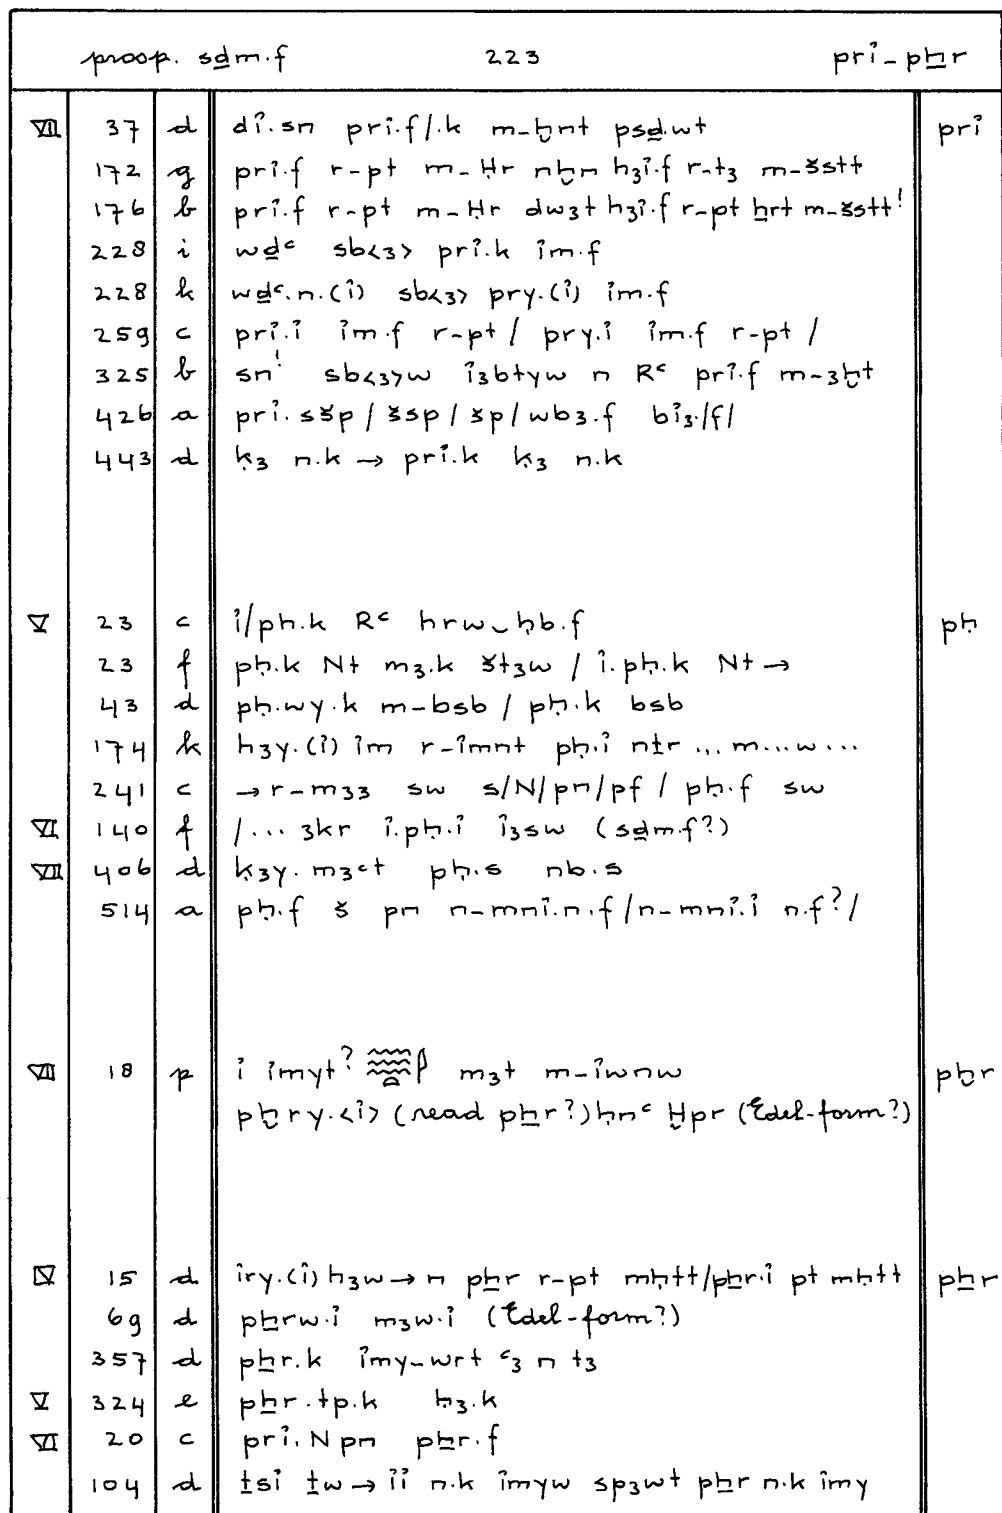 prosp. sḏm.f 223 prỉ - pẖr
VII 37 d dỉ.sn prỉ.f/.k m-ḫnt psḏ.wt prỉ
172 g prỉ.f r-pt m-Ḥr nḫn hꜣỉ.f r-tꜣ m-šstt
176 b prỉ.f r-pt m-Ḥr dwꜣt hꜣỉ.f r-pt ẖrt m-šstt!
228 i wḏꜥ sb<ꜣ> prỉ.k ỉm.f
228 k wḏꜥ.n.(ỉ) sb<ꜣ> pry.(ỉ) ỉm.f
259 c prỉ.ỉ ỉm.f r-pt / pry.ỉ ỉm.f r-pt /
325 b sn! sb<ꜣ>w ỉꜣbtyw n Rꜥ prỉ.f m-ꜣḫt
426 a prỉ.sšp / šsp / šp / wbꜣ.f bỉꜣ./f/
443 d ḳꜣ n.k → prỉ.k ḳꜣ n.k
V 23 c ỉ/pḥ.k Rꜥ hrw ḥb.f pḥ
23 f pḥ.k Nt mꜣ.k štꜣw / ỉ.pḥ.k Nt →
43 d pḥ.wy.k m-bsb / pḥ.k bsb
174 k hꜣy.(ỉ) ỉm r-ỉmnt pḥ.ỉ nṯr ... m...w...
241 c → r-mꜣꜣ sw s/N/pn/pf / pḥ.f sw
VI 140 f /... ꜣkr ỉ.pḥ.ỉ ỉꜣsw (sḏm.f?)
VII 406 d ḳꜣy. mꜣꜥt pḥ.s nb.s
514 a pḥ.f š pn n-mnỉ.n.f /n-mnỉ.ỉ n.f?/
VII 18 p ỉ ỉmyt? mꜣt m-ỉwnw pḫr
pḫry.<ỉ> (read pẖr?) ḥnꜥ Ḫpr (Edel-form?)
IV 15 d ỉry.(ỉ) hꜣw → n pẖr r-pt mḥtt/pẖr.ỉ pt mḥtt pẖr
69 d pẖrw.ỉ mꜣw.ỉ (Edel-form?)
357 d pẖr.k ỉmy-wrt ꜥꜣ n tꜣ
V 324 e pẖr.tp.k ḥꜣ.k
VI 20 c prỉ.N pn pẖr.f
104 d ṯsỉ ṯw → ỉỉ n.k ỉmyw spꜣwt pẖr n.k ỉmy